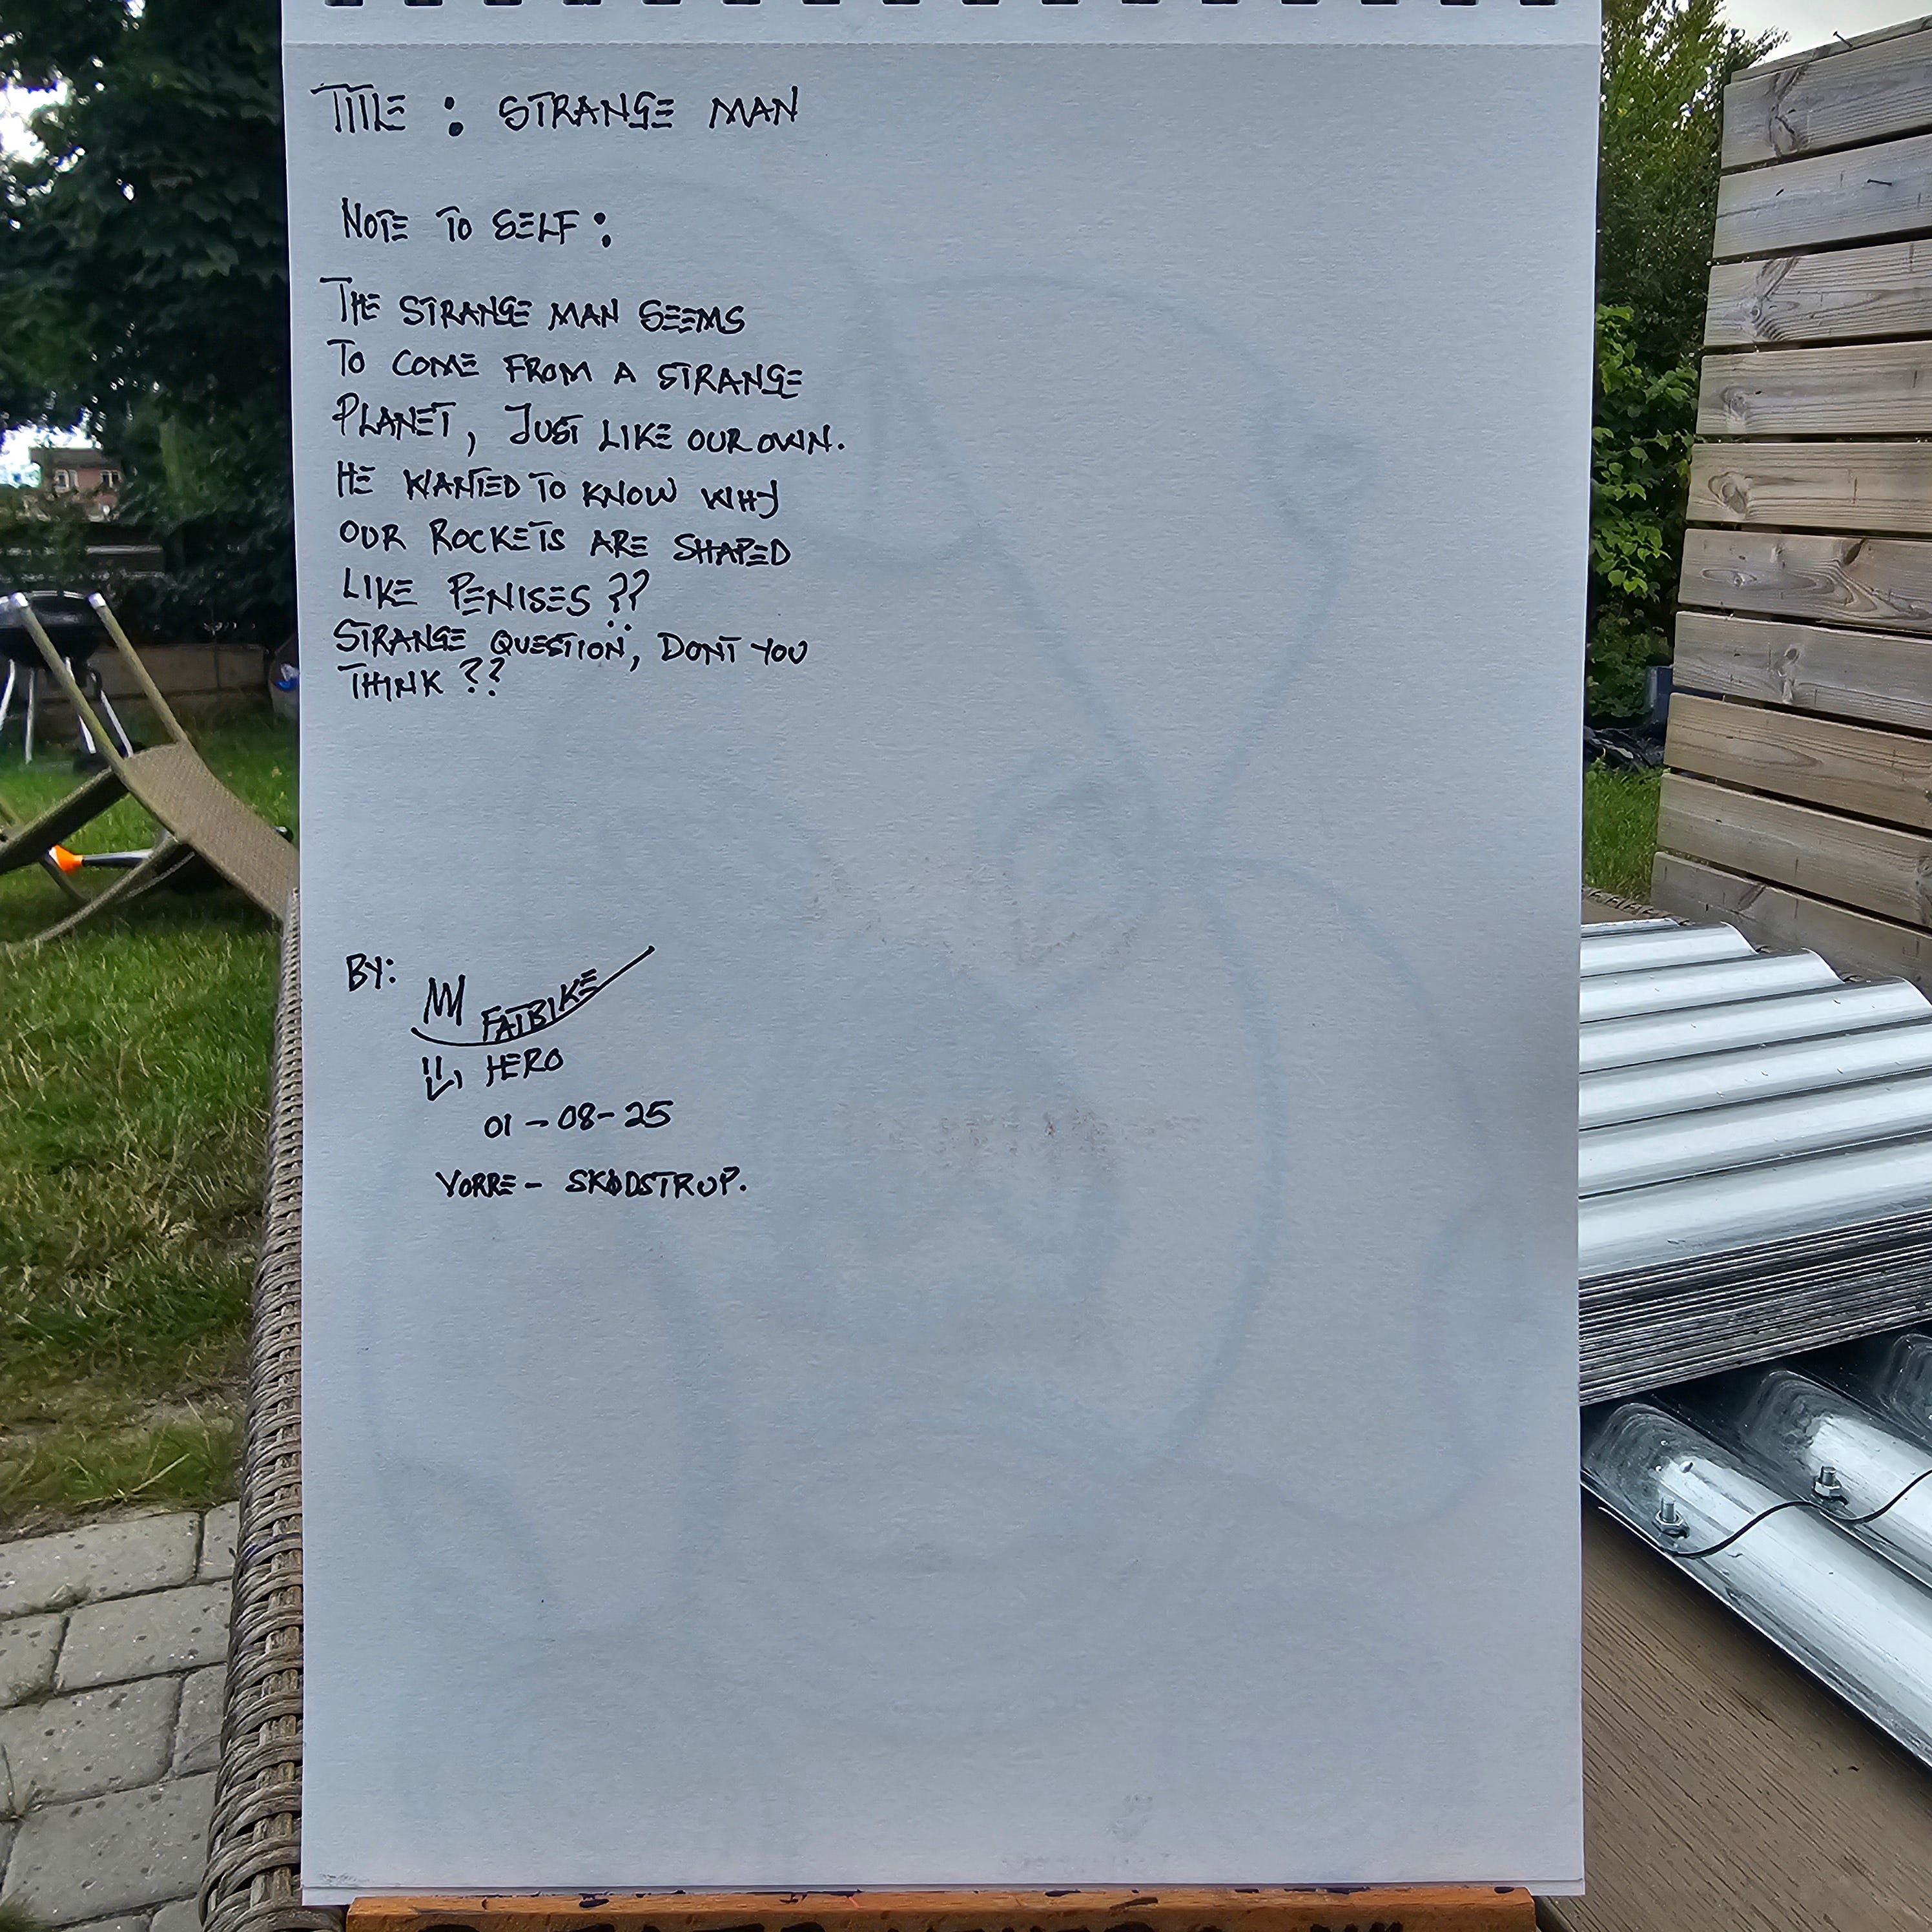 TITLE : STRANGE MAN
NOTE TO SELF :
THE STRANGE MAN SEEMS
TO COME FROM A STRANGE
PLANET, JUST LIKE OUR OWN.
HE WANTED TO KNOW WHY
OUR ROCKETS ARE SHAPED
LIKE PENISES ??
STRANGE QUESTION, DONT YOU
THINK ??
BY:
FATBIKE
HERO
01-08-25
VORRE - SKØDSTRUP.